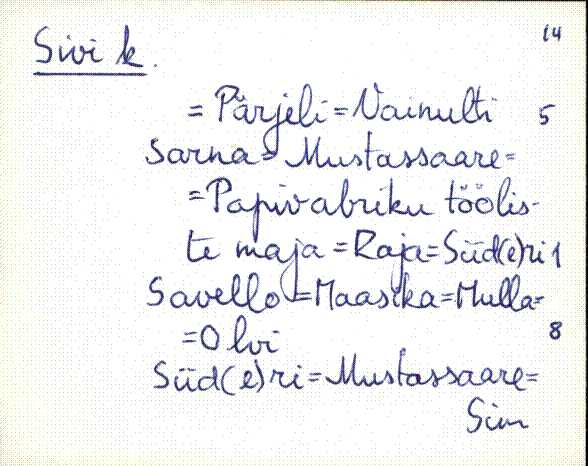 14
Sivi k.
= Pärjeli = Vainulti 5
Sarna = Mustassaare =
= Papivabriku töölis-
te maja = Raja = Süd(e)ri 1
Savello = Maasika = Mulla =
= Olvi 8
Süd(e)ri = Mustassaare =
Sim